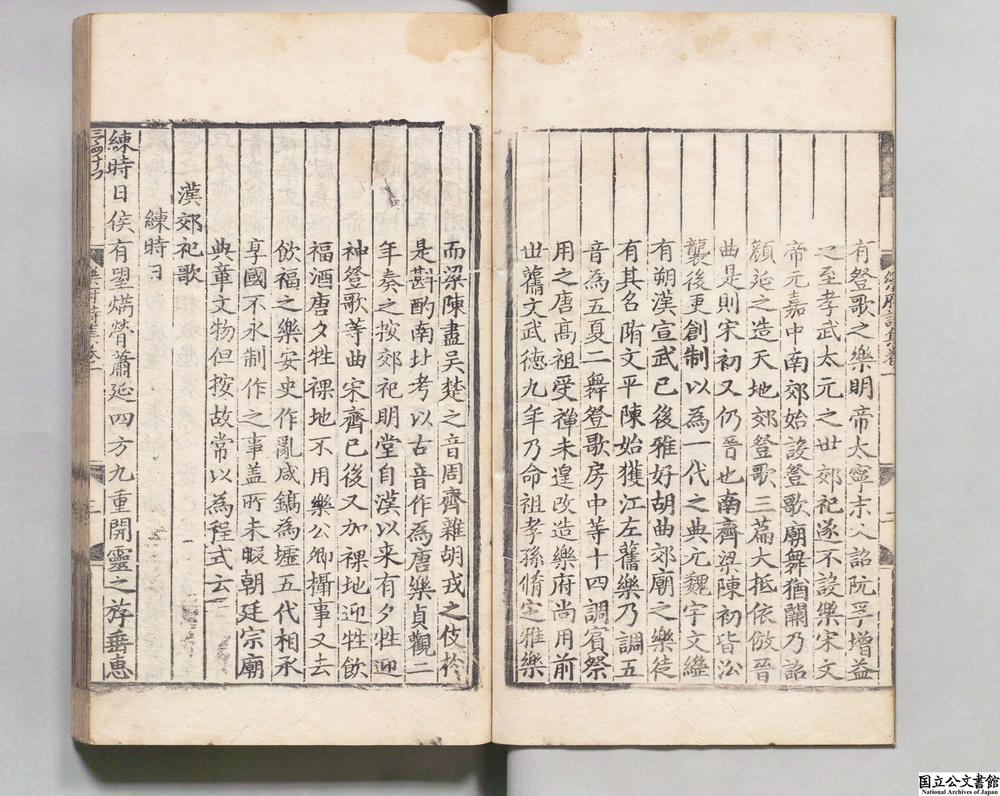 有登歌之樂明帝太寧末又詔阮孚增益
之至孝武太元之世郊祀遂不設樂宋文
帝元嘉中南郊始設登歌廟舞猶闕乃詔
顏延之造天地郊登歌三篇大抵依倣晉
曲是則宋初又仍晉也南齊梁陳初皆沿
襲後更創制以為一代之典元魏宇文繼
有朔漠宣武已後雅好胡曲郊廟之樂徒
有其名隋文平陳始獲江左舊樂乃調五
音為五夏二舞登歌房中等十四調賓祭
用之唐高祖受禪未遑改造樂府尚用前
世舊文武德九年乃命祖孝孫脩定雅樂
而梁陳盡吳楚之音周齊雜胡戎之伎於
是斟酌南北考以古音作為唐樂貞觀二
年奏之按郊祀明堂自漢以来有夕牲迎
神登歌等曲宋齊已後又加祼地迎牲飲
福酒唐夕牲祼地不用樂公卿攝事又去
飲福之樂安史作亂咸鎬為墟五代相承
享國不永制作之事盖所未暇朝廷宗廟
典章文物但按故常以為程式云
漢郊祀歌
練時日
練時日侯有望焫膋蕭延四方九重開靈之斿垂惠
樂府詩集卷一
三
国立公文書館
National Archives of Japan